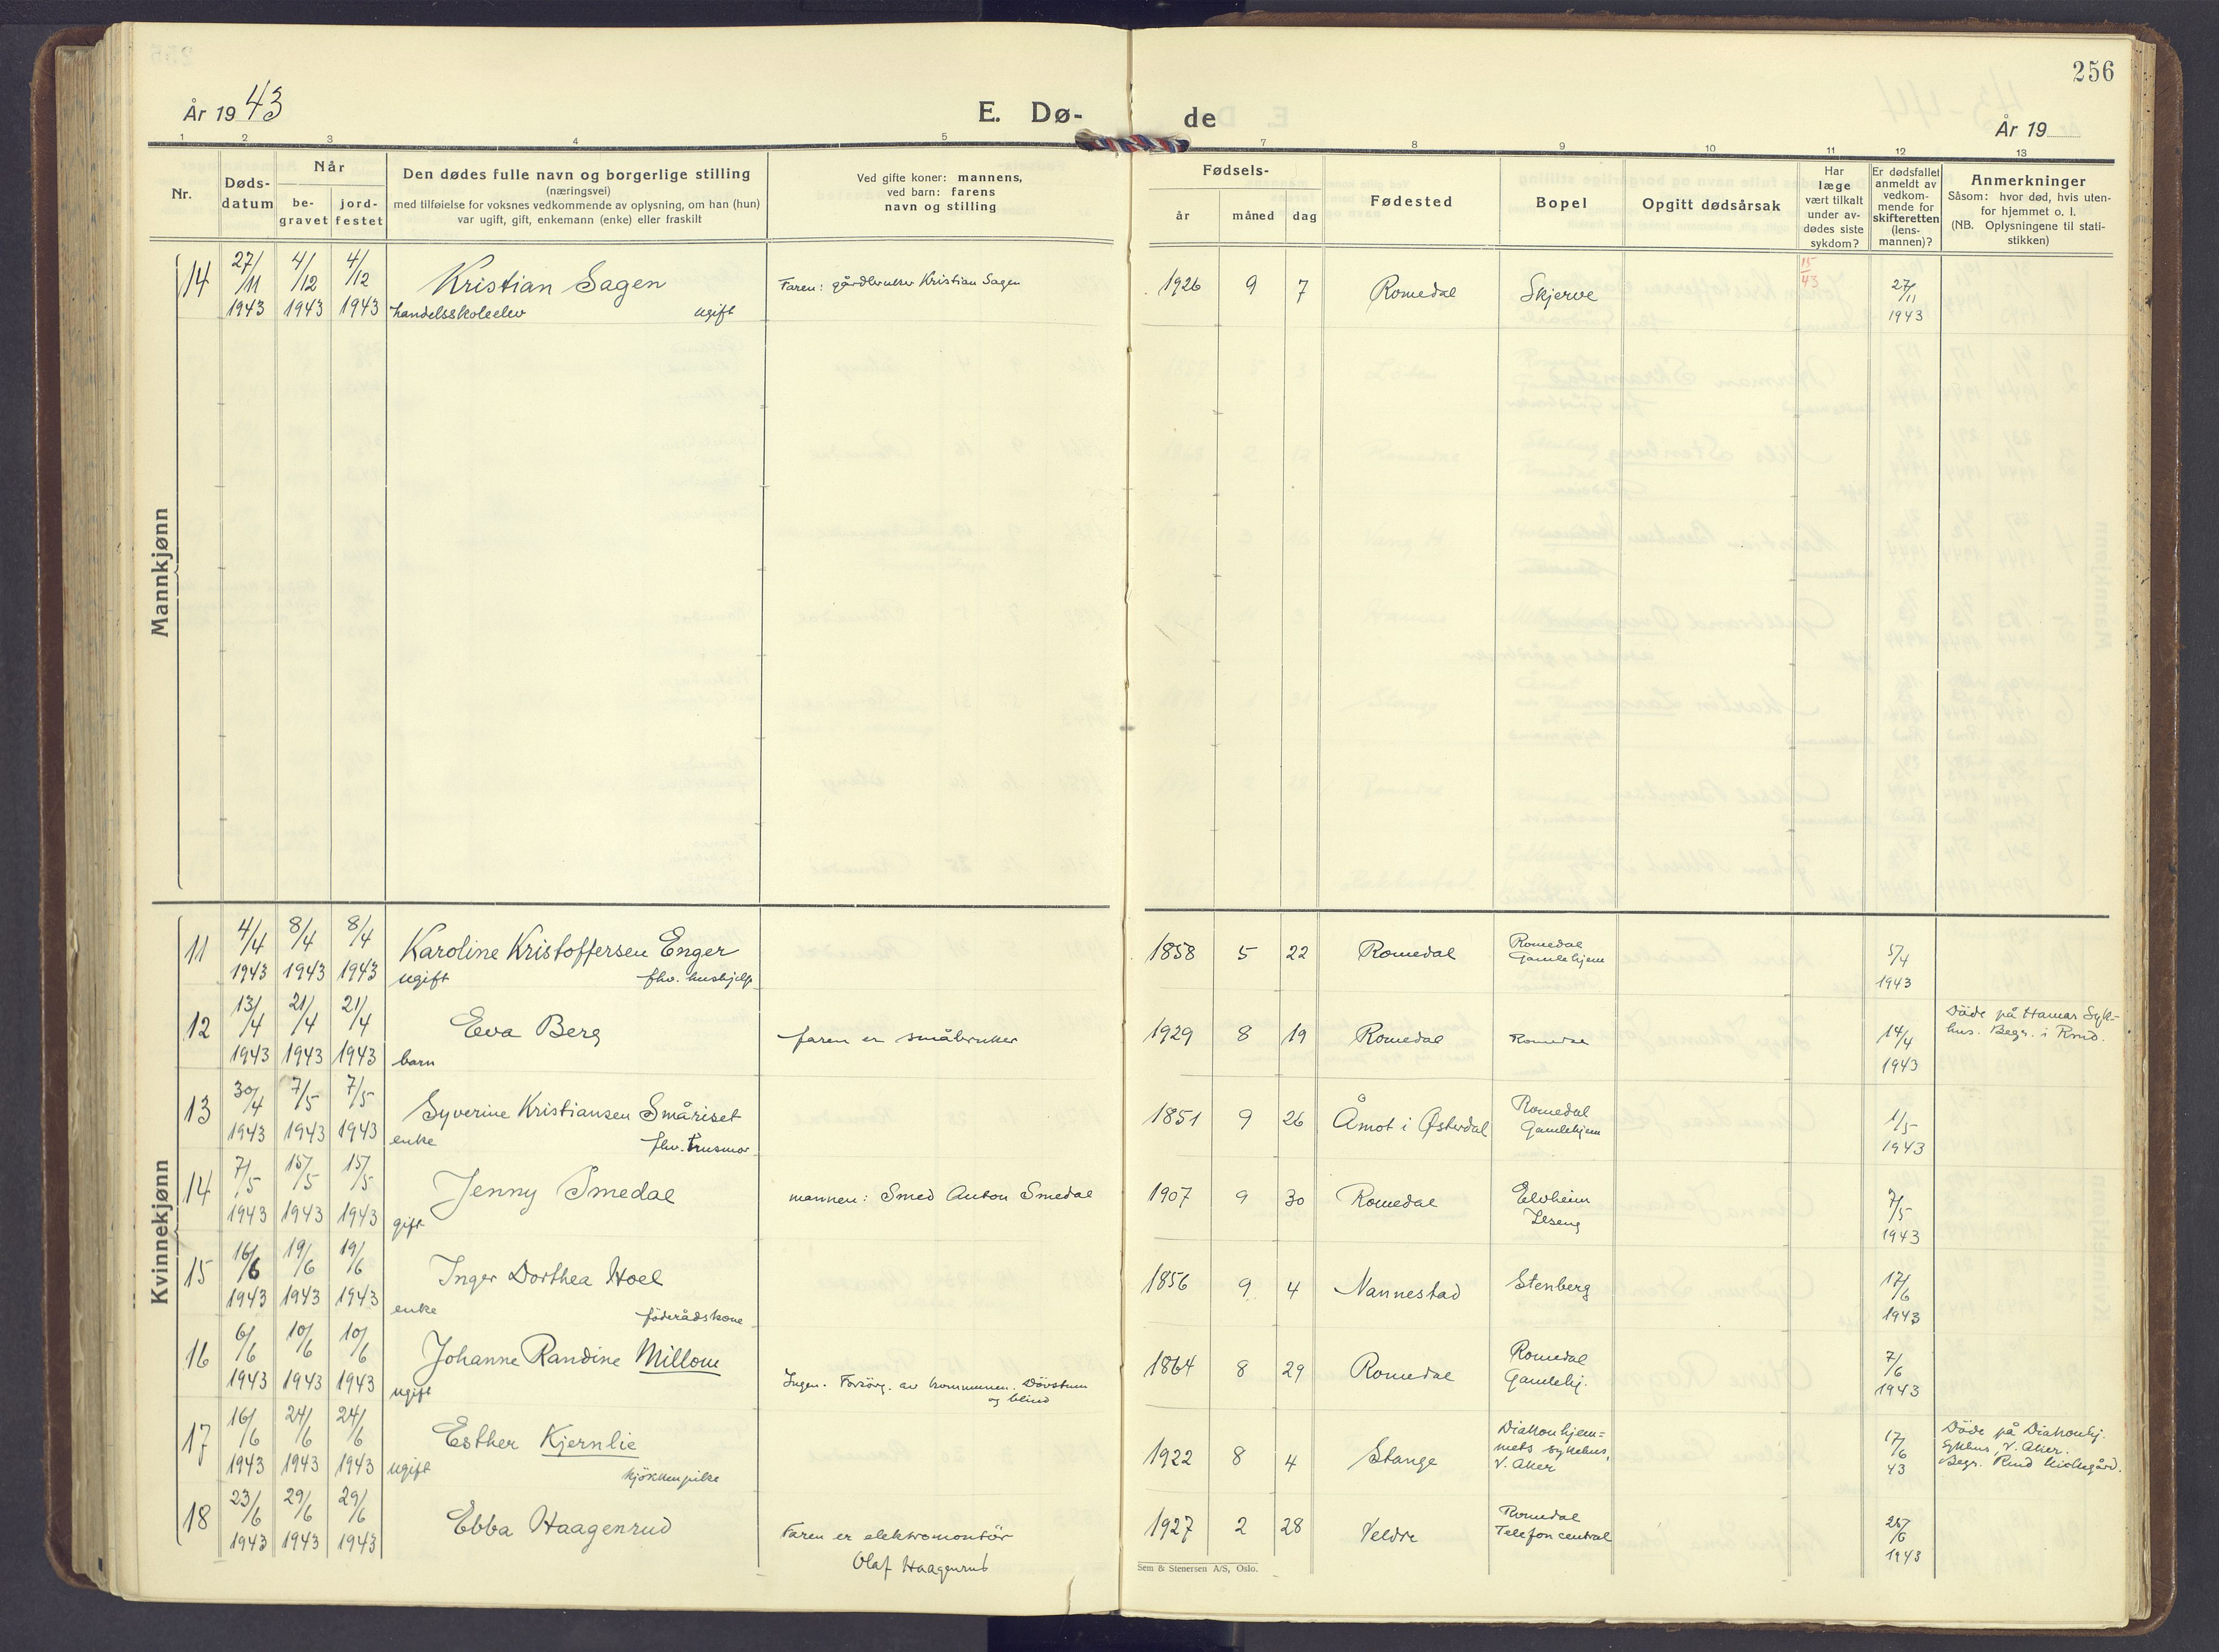 256
År 1943
E. Dø-
de
År 19
1 2 3 4 5 7 8 9 10 11 12 13
Nr.
Døds-
datum
Når
be-
gravet
jord-
festet
Den dødes fulle navn og borgerlige stilling
(næringsvei)
med tilføielse for voksnes vedkommende av oplysning, om han (hun)
var ugift, gift, enkemann (enke) eller fraskilt
Ved gifte koner: mannens,
ved barn: farens
navn og stilling
Fødsels-
år
måned
dag
Fødested
Bopel
Opgitt dødsårsak
Har
læge
vært tilkalt
under av-
dødes siste
sykdom?
Er dødsfallet
anmeldt av
vedkom-
mende for
skifteretten
(lens-
mannen)?
Anmerkninger
Såsom: hvor død, hvis uten-
for hjemmet o. l.
(NB. Oplysningene til stati-
stikken)
Mannkjønn
14 27/11 4/12 4/12 Kristian Sagen Faren: gårdbruker Kristian Sagen 1926 9 7 Romedal Skjerve 15/43 27/11
1943 1943 1943 handelsskoleelev ugift 1943
Kvinnekjønn
11 4/4 8/4 8/4 Karoline Kristoffersen Enger 1858 5 22 Romedal Romedal 5/4
1943 1943 1943 ugift fhv. hushjelp Gamlehjem 1943
12 13/4 21/4 21/4 Eva Berg faren er småbruker 1929 8 19 Romedal Romedal 14/4 Døde på Hamar Syk-
1943 1943 1943 barn 1943 hus. Begr. i Rmd.
13 30/4 7/5 7/5 Syverine Kristiansen Småriset 1851 9 26 Åmot i Østerdal Romedal 1/5
1943 1943 1943 enke fhv. husmor Gamlehjem 1943
14 7/5 15/5 15/5 Jenny Smedal mannen: Smed Anton Smedal 1907 9 30 Romedal Elvheim 7/5
1943 1943 1943 gift Ilseng 1943
15 16/6 19/6 19/6 Inger Dorthea Hoel 1856 9 4 Nannestad Stenberg 17/6
1943 1943 1943 enke föderådskone 1943
16 6/6 10/6 10/6 Johanne Randine Millom 1864 8 29 Romedal Romedal 7/6
1943 1943 1943 ugift Ingen. Forsörg. av kommunen. Dövstum Gamlehj. 1943
og blind
17 16/6 24/6 24/6 Esther Kjernlie 1922 8 4 Stange Diakonhjem- 17/6 Döde på Diakonhj.
1943 1943 1943 ugift kjökkenpike mets sykehus, 43 sykhus, V. Aker.
V. Aker Begr. Rmd kirkegård.
18 23/6 29/6 29/6 Ebba Haagenrud Faren er elektromontör 1927 2 28 Veldre Romedal 25/6
1943 1943 1943 Olaf Haagenrud Telefoncentral 1943
Sem & Stenersen A/S, Oslo.